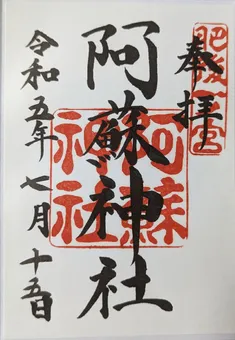 肥後一之宮
奉拝
阿蘇神社
阿蘇
神社
令和五年七月十五日